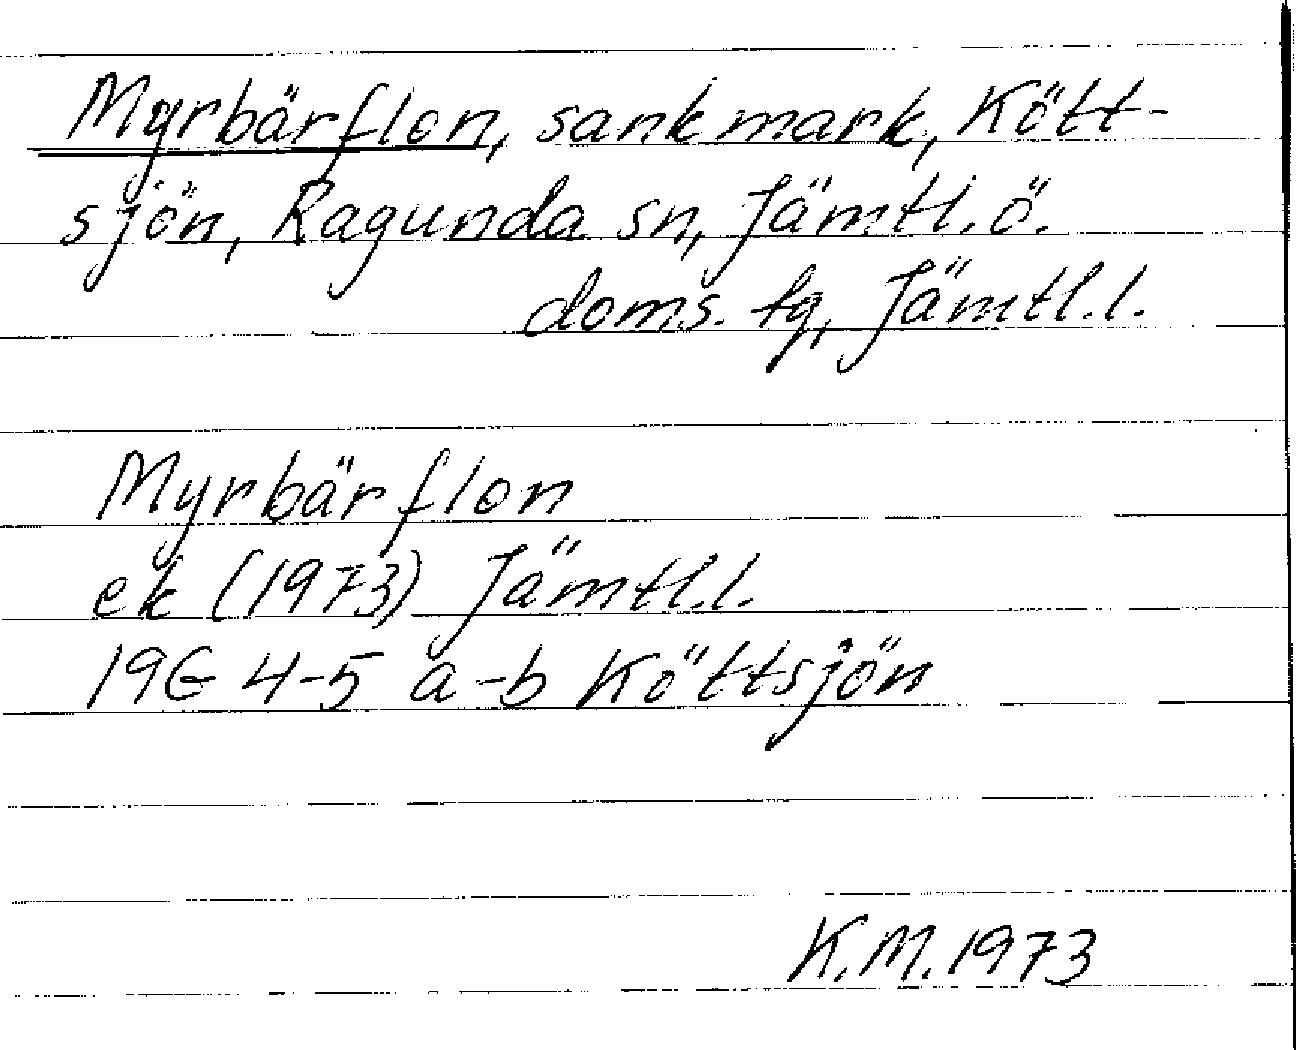 Myrbärflon, sankmark, Kött-
sjön, Ragunda sn, Jämtl. ö.
doms. tg, Jämtl. l.
Myrbärflon
ek (1973) Jämtl. l.
19G 4-5 a-b Köttsjön
K.M. 1973